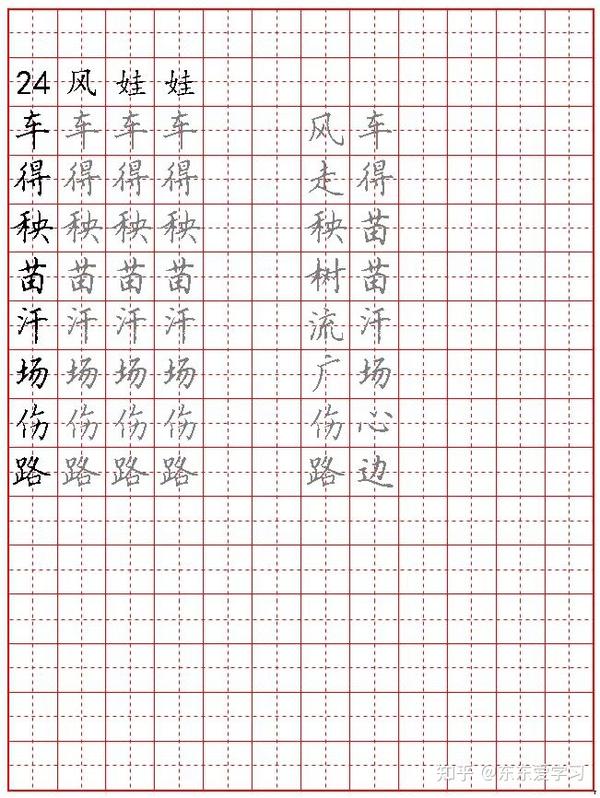 24风娃娃
车车车车 风车
得得得得 走得
秧秧秧秧 秧苗
苗苗苗苗 树苗
汗汗汗汗 流汗
场场场场 广场
伤伤伤伤 伤心
路路路路 路边
知乎 @东东爱学习